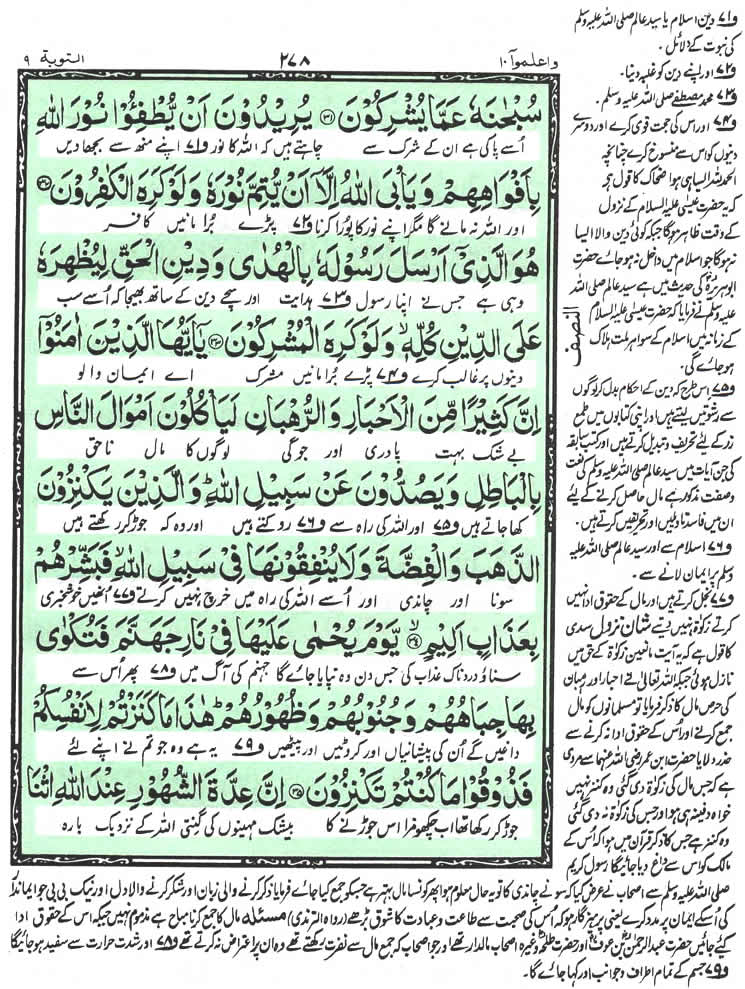 التوبة ٩
٢٧٨
واعلموا ١٠
سُبْحٰنَهٗ عَمَّا يُشْرِكُوْنَ ۝۳۱ يُرِيْدُوْنَ اَنْ يُّطْفِـُٔوْا نُوْرَ اللّٰهِ
اُسے پاکی ہے ان کے شرک سے چاہتے ہیں کہ اللہ کا نور و۷۱ اپنے منھ سے بجھا دیں
بِاَفْوَاهِهِمْ وَيَاْبَى اللّٰهُ اِلَّآ اَنْ يُّتِمَّ نُوْرَهٗ وَلَوْ كَرِهَ الْكٰفِرُوْنَ ۝۳۲
اور اللہ نہ مانے گا مگر اپنے نور کا پورا کرنا و۷۲ پڑے برا مانیں کافر
هُوَ الَّذِيْٓ اَرْسَلَ رَسُوْلَهٗ بِالْهُدٰى وَدِيْنِ الْحَقِّ لِيُظْهِرَهٗ
وہی ہے جس نے اپنا رسول و۷۳ ہدایت اور سچے دین کے ساتھ بھیجا کہ اُسے سب
عَلَى الدِّيْنِ كُلِّهٖ ۙ وَلَوْ كَرِهَ الْمُشْرِكُوْنَ ۝۳۳ يٰٓاَيُّهَا الَّذِيْنَ اٰمَنُوْٓا
دینوں پر غالب کرے و۷۴ پڑے برا مانیں مشرک اے ایمان والو
اِنَّ كَثِيْرًا مِّنَ الْاَحْبَارِ وَالرُّهْبَانِ لَيَاْكُلُوْنَ اَمْوَالَ النَّاسِ
بے شک بہت پادری اور جوگی لوگوں کا مال ناحق
بِالْبَاطِلِ وَيَصُدُّوْنَ عَنْ سَبِيْلِ اللّٰهِ ؕ وَالَّذِيْنَ يَكْنِزُوْنَ
کھا جاتے ہیں و۷۵ اور اللہ کی راہ سے و۷۶ روکتے ہیں اور وہ کہ جوڑ کر رکھتے ہیں
الذَّهَبَ وَالْفِضَّةَ وَلَا يُنْفِقُوْنَهَا فِيْ سَبِيْلِ اللّٰهِ ۙ فَبَشِّرْهُمْ
سونا اور چاندی اور اُسے اللہ کی راہ میں خرچ نہیں کرتے و۷۷ اُنھیں خوشخبری
بِعَذَابٍ اَلِيْمٍ ۝۳۴ يَّوْمَ يُحْمٰى عَلَيْهَا فِيْ نَارِ جَهَنَّمَ فَتُكْوٰى
سناؤ دردناک عذاب کی جس دن وہ تپایا جائے گا جہنم کی آگ میں و۷۸ پھر اُس سے
بِهَا جِبَاهُهُمْ وَجُنُوْبُهُمْ وَظُهُوْرُهُمْ ؕ هٰذَا مَا كَنَزْتُمْ لِاَنْفُسِكُمْ
داغیں گے اُن کی پیشانیاں اور کروٹیں اور پیٹھیں و۷۹ یہ ہے وہ جو تم نے اپنے لئے
فَذُوْقُوْا مَا كُنْتُمْ تَكْنِزُوْنَ ۝۳۵ اِنَّ عِدَّةَ الشُّهُوْرِ عِنْدَ اللّٰهِ اثْنَا
جوڑ کر رکھا تھا اب چکھو مزا اس جوڑنے کا بیشک مہینوں کی گنتی اللہ کے نزدیک بارہ
النصف
و۷۱ دین اسلام یا سید عالم صلی اللہ علیہ وسلم
کی نبوت کے دلائل۔
و۷۲ اور اپنے دین کو غلبہ دینا۔
و۷۳ محمد مصطفےٰ صلی اللہ علیہ وسلم۔
و۷۴ اور اس کی حجت قوی کرے اور دوسرے
دینوں کو اس سے منسوخ کرے چنانچہ
الحمد للہ ایسا ہی ہوا ضحاک کا قول ہے
کہ یہ حضرت عیسیٰ علیہ السلام کے نزول
کے وقت ظاہر ہوگا جبکہ کوئی دین والا ایسا
نہ ہوگا جو اسلام میں داخل نہ ہو جائے حضرت
ابوہریرہ کی حدیث میں ہے سید عالم صلی اللہ
علیہ وسلم نے فرمایا کہ حضرت عیسیٰ علیہ السلام
کے زمانہ میں اسلام کے سوا ہر ملت ہلاک
ہو جائے گی۔
و۷۵ اس طرح کہ دین کے احکام بدل کر لوگوں
سے رشوتیں لیتے ہیں اور اپنی کتابوں میں طمع
زر کے لئے تحریف و تبدیل کرتے ہیں اور کتب سابقہ
کی جن آیات میں سید عالم صلی اللہ علیہ وسلم کی نعت
و صفت مذکور ہے مال حاصل کرنے کے لئے
ان میں فاسد تاویلیں اور تحریفیں کرتے ہیں۔
و۷۶ اسلام سے اور سید عالم صلی اللہ علیہ
وسلم پر ایمان لانے سے۔
و۷۷ بخل کرتے ہیں اور مال کے حقوق ادا نہیں
کرتے زکوٰۃ نہیں دیتے شان نزول سدی
کا قول ہے کہ یہ آیت مانعین زکوٰۃ کے حق میں
نازل ہوئی جبکہ اللہ تعالیٰ نے احبار اور رہبان
کی حرص مال کا ذکر فرمایا تو مسلمانوں کو مال
جمع کرنے اور اُس کے حقوق ادا نہ کرنے سے
حذر دلایا حضرت ابن عمر رضی اللہ عنہما سے مروی
ہے کہ جس مال کی زکوٰۃ دی گئی وہ کنز نہیں
خواہ دفینہ ہی ہو اور جس کی زکوٰۃ نہ دی گئی
وہ کنز ہے جس کا ذکر قرآن میں ہوا کہ اُس کے
مالک کو اس سے داغ دیا جائیگا رسول کریم
صلی اللہ علیہ وسلم سے اصحاب نے عرض کیا کہ سونے چاندی کا تو یہ حال معلوم ہوا پھر کونسا مال بہتر ہے جسکو جمع کیا جائے فرمایا ذکر کرنے والی زبان اور شکر کرنے والا دل اور نیک بی بی جو ایماندار
کی اُسکے ایمان پر مدد کرے یعنی پرہیزگار ہو کہ اُس کی صحبت سے طاعت و عبادت کا شوق بڑھے (رواہ الترمذی) مسئلہ مال کا جمع کرنا مباح ہے مذموم نہیں جبکہ اس کے حقوق ادا
کئے جائیں حضرت عبدالرحمٰن بن عوف اور حضرت طلحہ وغیرہ اصحاب مالدار تھے اور جو اصحاب کہ جمع مال سے نفرت رکھتے تھے وہ ان پر اعتراض نہ کرتے تھے و۷۸ اور شدت حرارت سے سفید ہو جائیگا
و۷۹ جسم کے تمام اطراف و جوانب اور کہا جائے گا۔